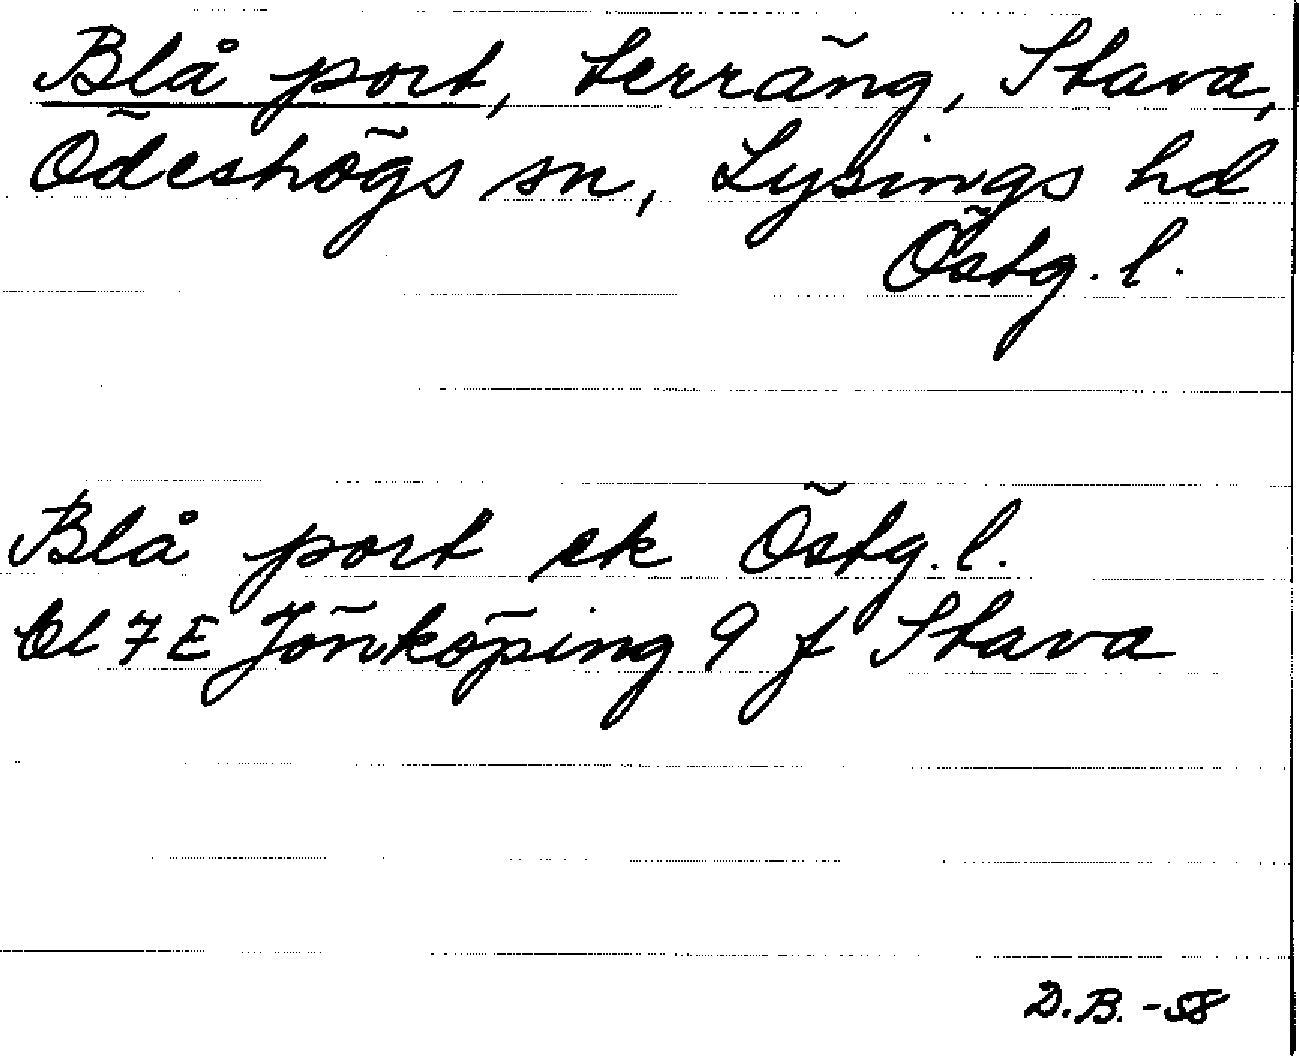 Blå port, terräng, Stava,
Ödeshögs sn, Lysings hd
Östg. l.
Blå port ek Östg. l.
bl 7E Jönköping 9 f Stava
D.B. -58